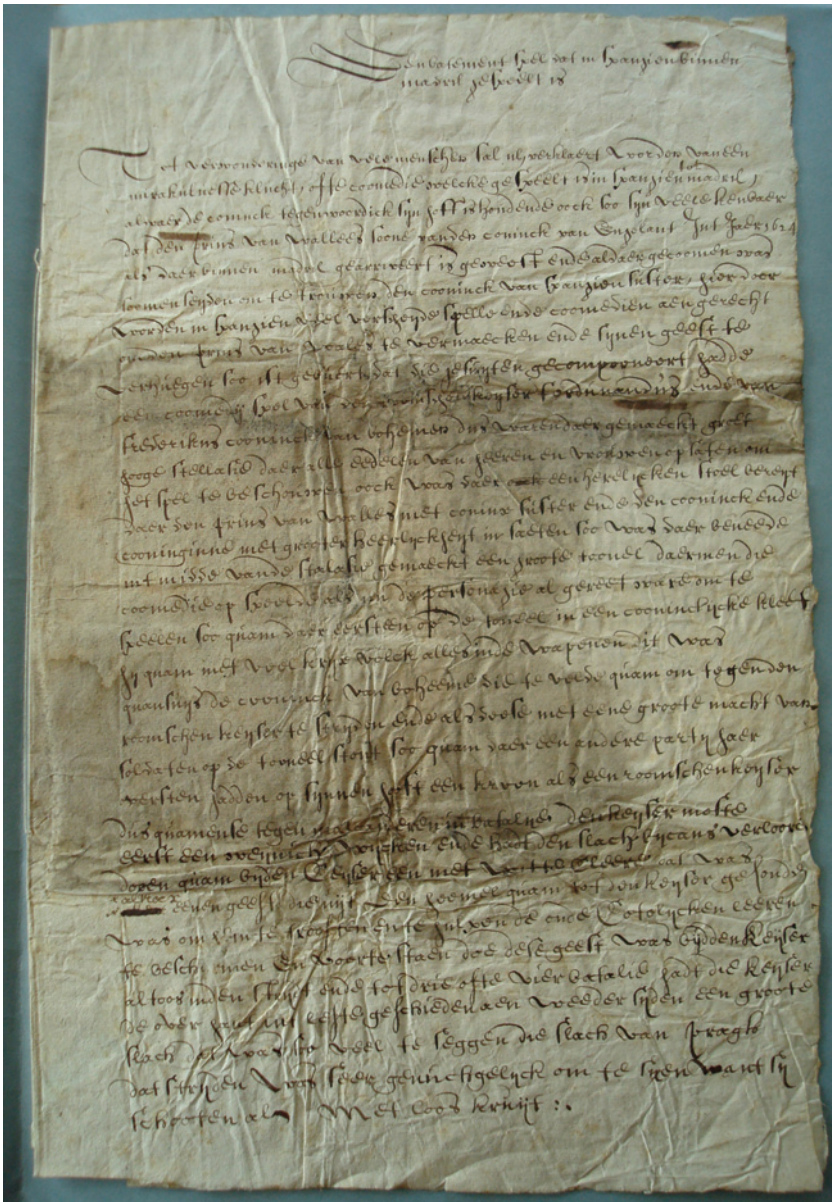 Een batement spel dat in spangien binnen
madril gespeelt is
Tot verwonderinge van vele menschen sal u verklaert worden van een
mirakulnesse klucht, ofte coomedie welcke gespeelt is in spangien tot madril,
alwaer de coninck tegenwoordick sijn hoff is houdende oock soo sijn veele kenbaer
dat den prins van walles soone vanden coninck van Engelant Int Jaer 1624
als daer binnen madril gearriveert is geweest ende aldaer gecoomen was
soomen seyden om te trouwen den cooninck van spangien suster, hier door
worden in spangien veel verscheyde spelle ende coomedien aen gerecht
om den prins van walles te vermaecken ende sijnen geest te
verheugen soo ist gebuert dat die jesuyten gecomponeert hadde
een coomedi spel van den roomschen keyser fordinandus ende van
frederikus cooninck van bohemen dus waren daer gemaeckt groot
hooge stellasie daer alle eedelen van heeren en vrouwen op saten om
het spel te beschouwen oock was daer een herelycken stoel bereyt
daer den prins van walles met conincx suster ende den cooninck ende
cooninginne met grooter heerlyckheyt in saeten soo was daer beneede
int midde vande stalasie gemaeckt een groote tooneel daermen die
coomedie op speelde als nu de personagie al gereet ware om te
speelen soo quam daer eersten op de toneel in een cooninclycke kleet
hy quam met veel krijs volck alles inde wapenen dit was
quansuys de cooninck van boheeme die te velde quam om tegen den
roomschen keyser te stryden ende als deese met eene groote macht van
soldaten op de tooneel stont soo quam daer een andere party haer
oversten hadden op sijnnen hooft een kroon als een roomschen keyser
dus quamense tegen malkanderen in batalie den keyser moste
eerst een weynich wycken ende hadt den slach bycans verlooren
doen quam byden Keyser een met witte cleere dat was
eenen geest die uijt den hoemel quam tot den keyser gesonden
was om hem te troosten en te hulpen de onse Catolycken leeren
te beschermen en voor te staen doe dese geest was by den Keyser
altoos inden strijt ende tot drie ofte vier batalie hadt die Keyser
de overhant int leste geschieden aen weeder syden een groote
slach dat was soo veel te seggen die slach van praghe
dat stryden was seer genuchgelyck om te syen want sy
schooten al met loos kruijt :.